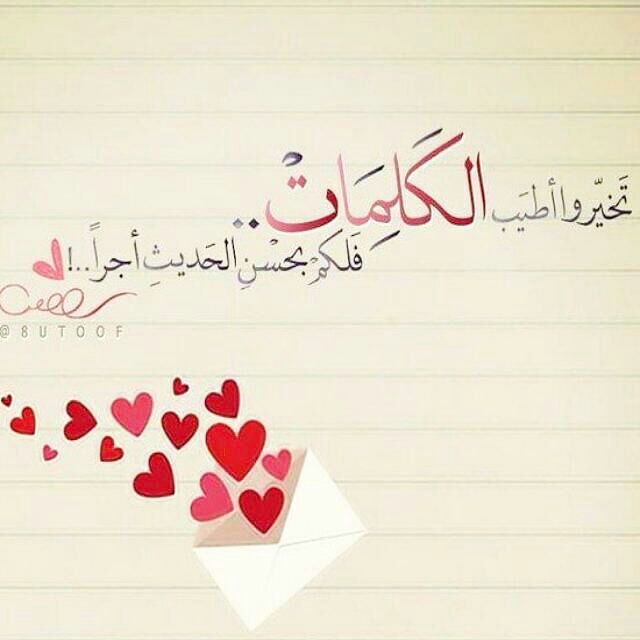 تَخيّروا أطيَب الكَلِمَاتْ..
فَلَكُمْ بحُسْنِ الحَديثِ أجراً..!
@8UTOOF